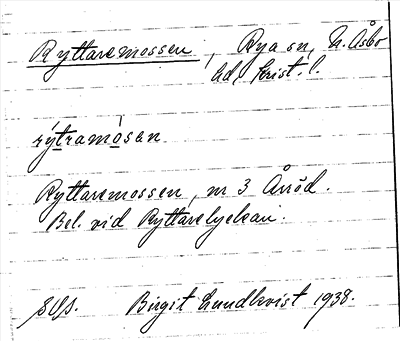 Ryttaremossen, Rya sn, N. Åsbo
hd, Krist. l.
rýtramòsan
Ryttaremossen, nr 3 Årröd.
Bel. vid Ryttarelyckan.
Birgit Lundkvist 1938.